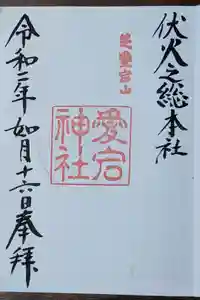 伏火之総本社
芝愛宕山
愛宕
神社
令和二年如月十六日奉拝